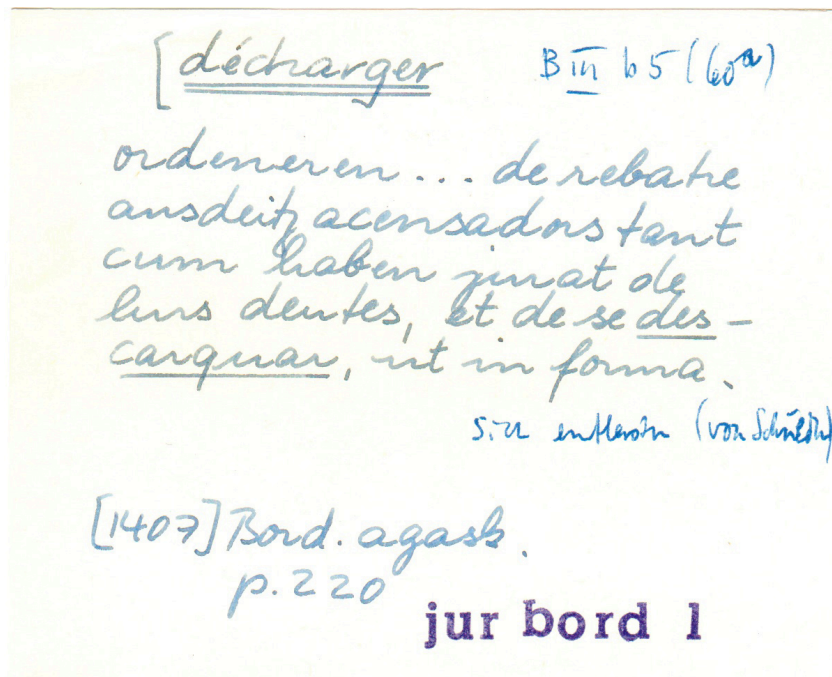 [décharger B III b 5 (60a)
ordeneren ... de rebatre
ausdeitz acensadors tant
cum haben jurat de
lurs deutes, et de se des-
carquar, ut in forma.
sich entlasten (von Schulden)
[1407] Bord. agask.
p. 220
jur bord 1